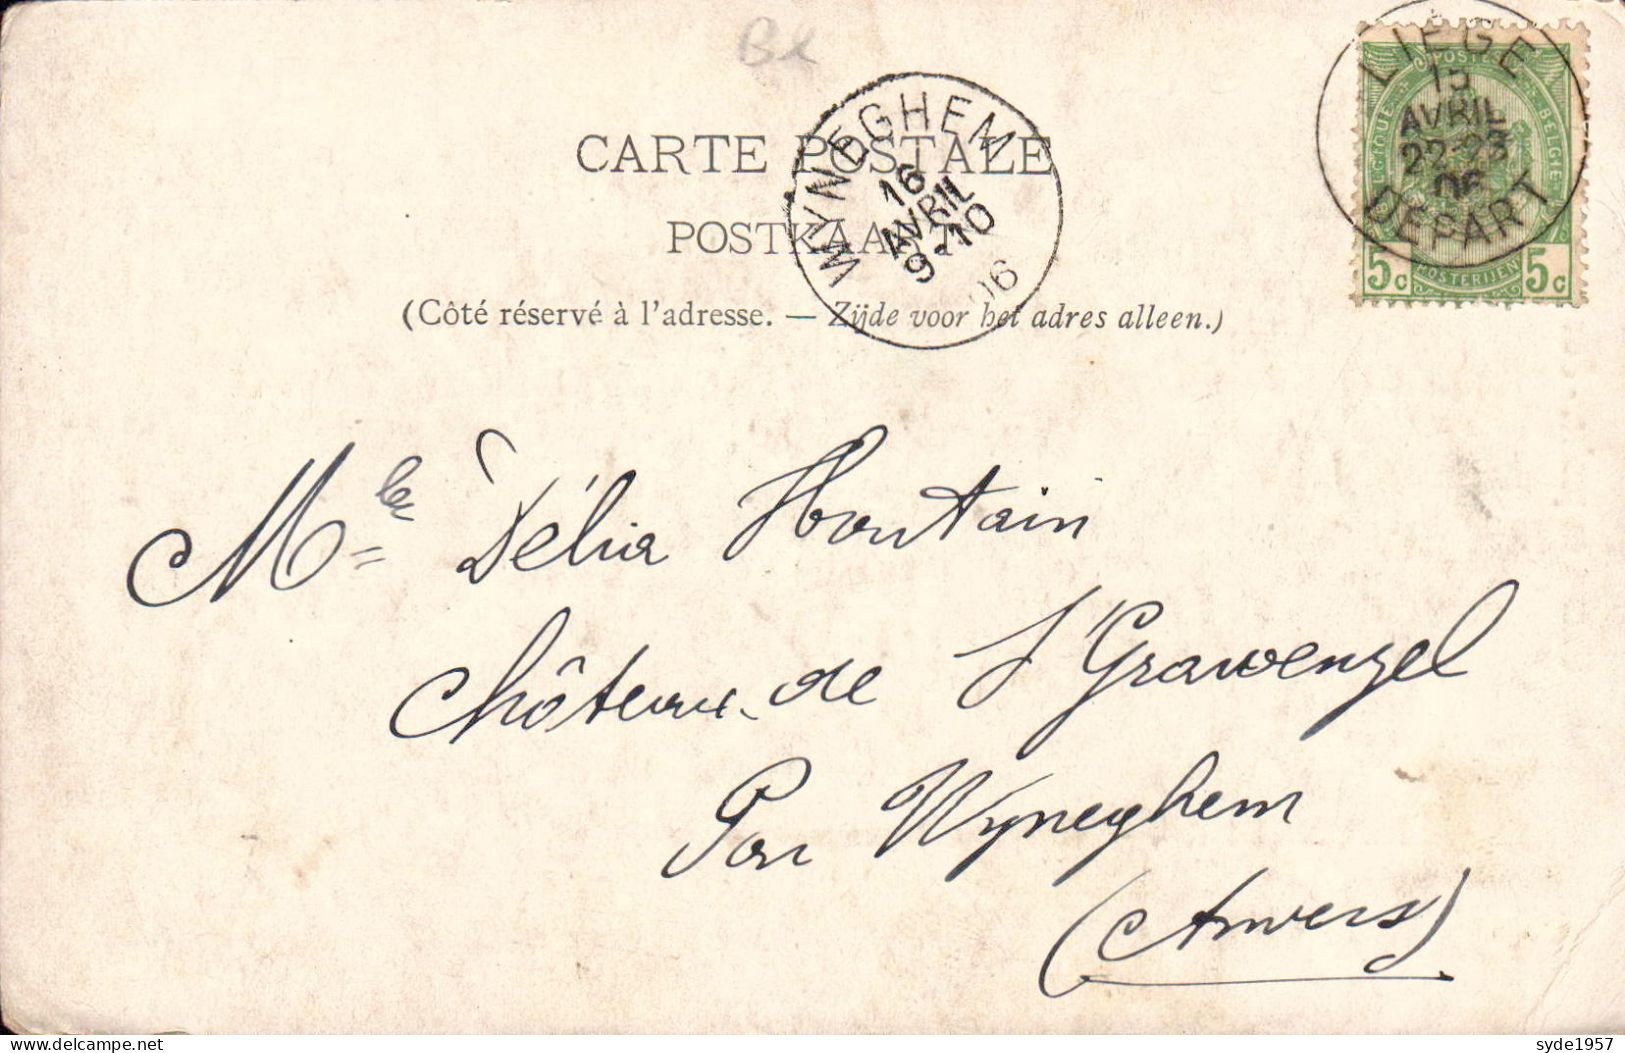 Bl
CARTE POSTALE
POSTKAART
(Côté réservé à l'adresse. — Zijde voor het adres alleen.)
WYNEGHEM
16
AVRIL
9-10
06
LIEGE
15
AVRIL
22-23
06
DEPART
POSTES
BELGIQUE
BELGIE
5c POSTERIJEN 5c
Mlle Délia Houtain
Château de S'Gravenzel
Par Wyneghem
(Anvers)
syde1957